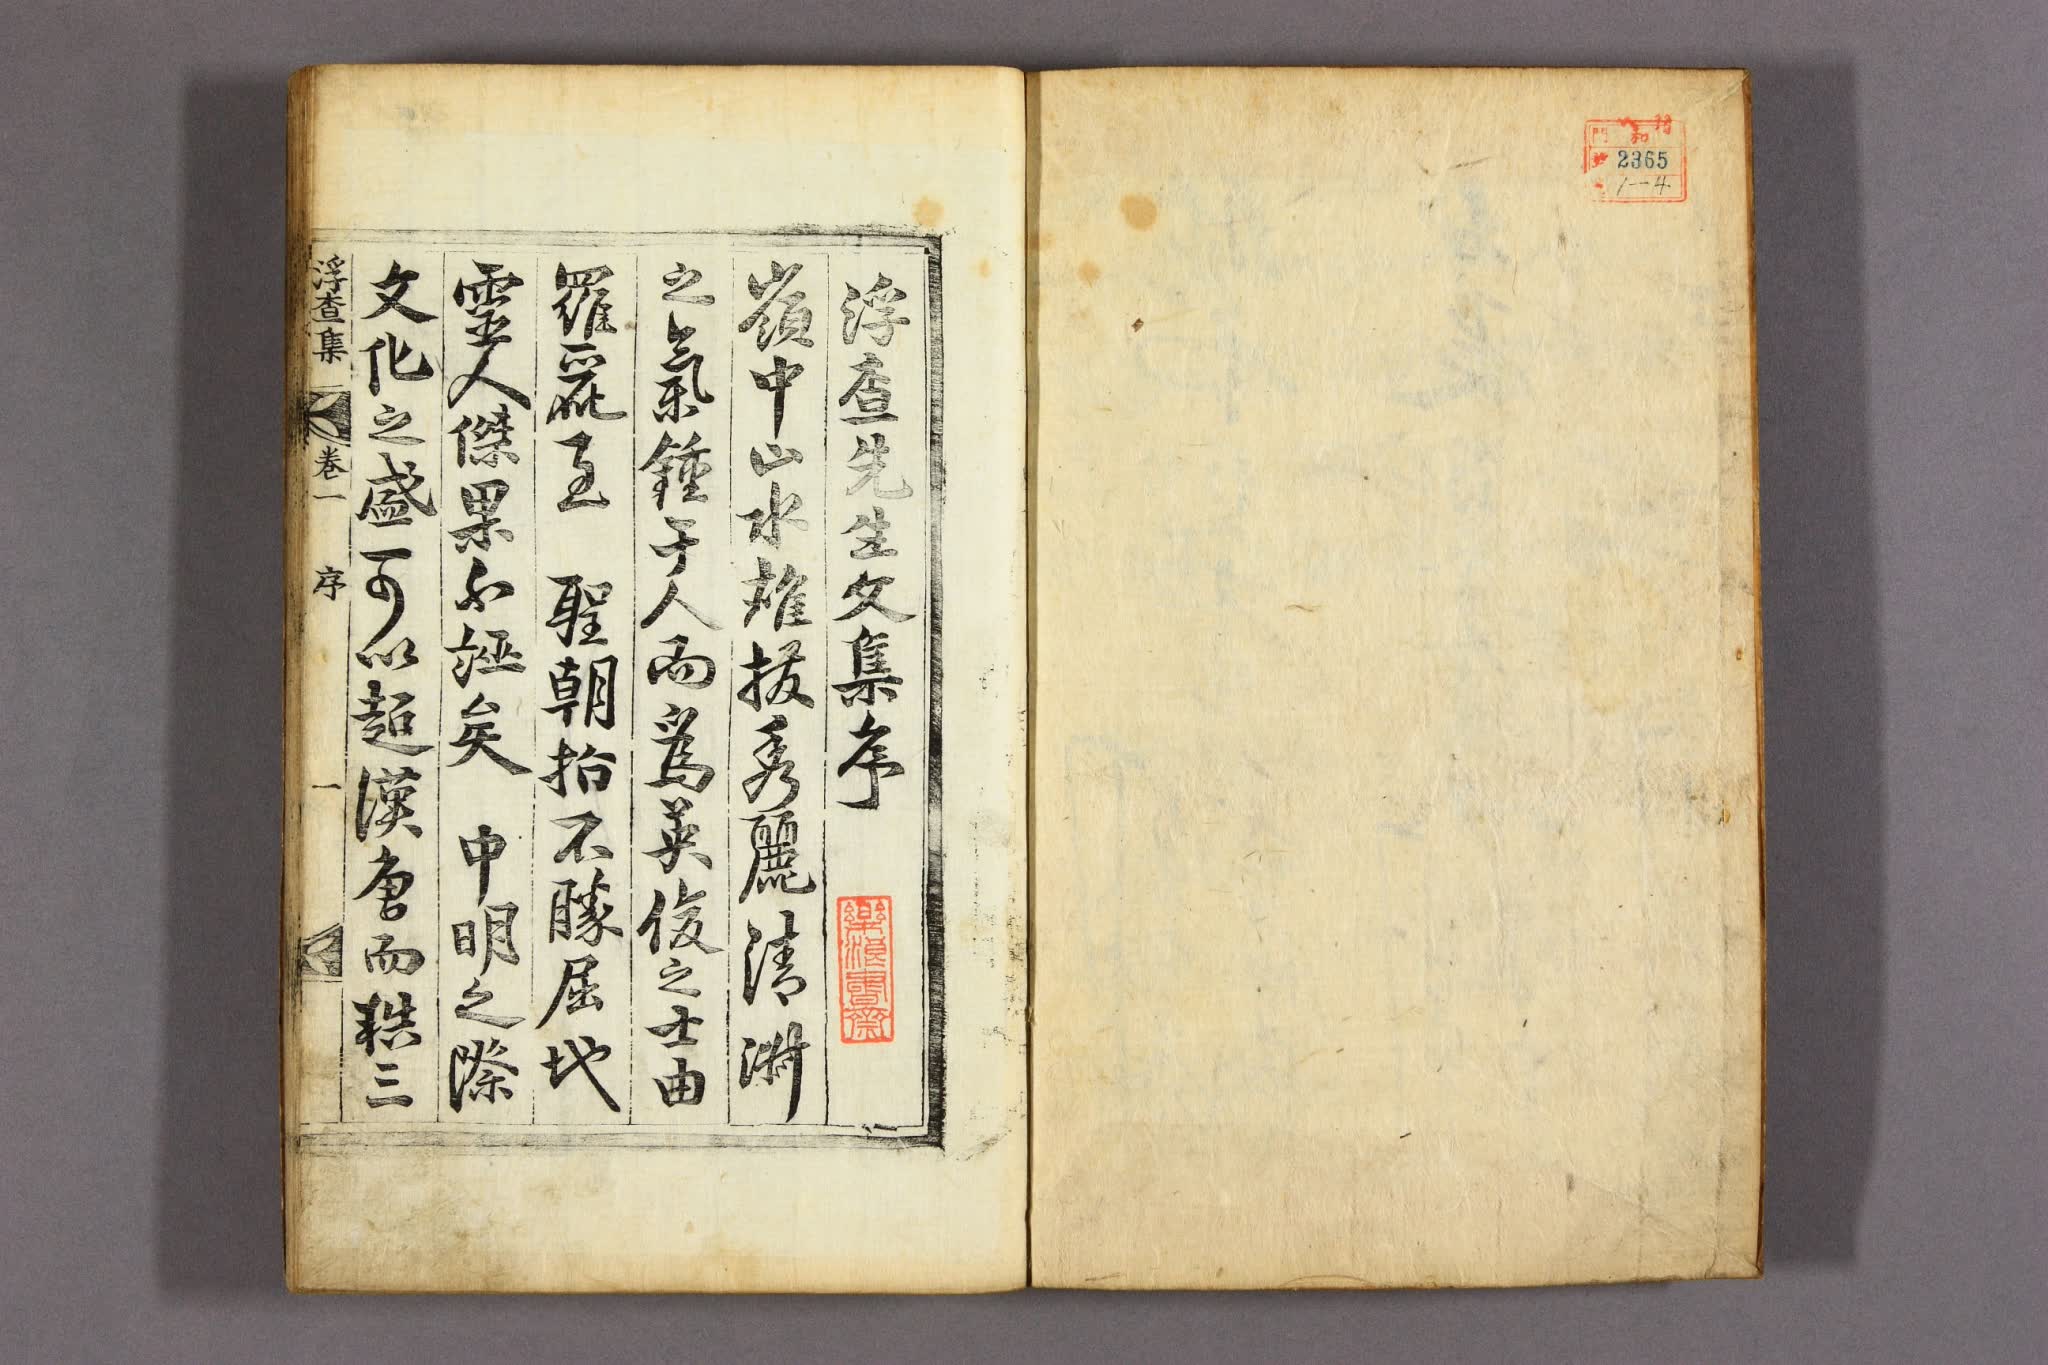 2365
1—4
浮查先生文集序
嶺中山水雄拔秀麗清淑
之氣鍾于人而爲英俊之士由
羅麗至 聖朝指不勝屈地
靈人傑果不誣矣 中明之際
文化之盛可以超漢唐而軼三
浮查集 卷一 序 一
樂浪書齋